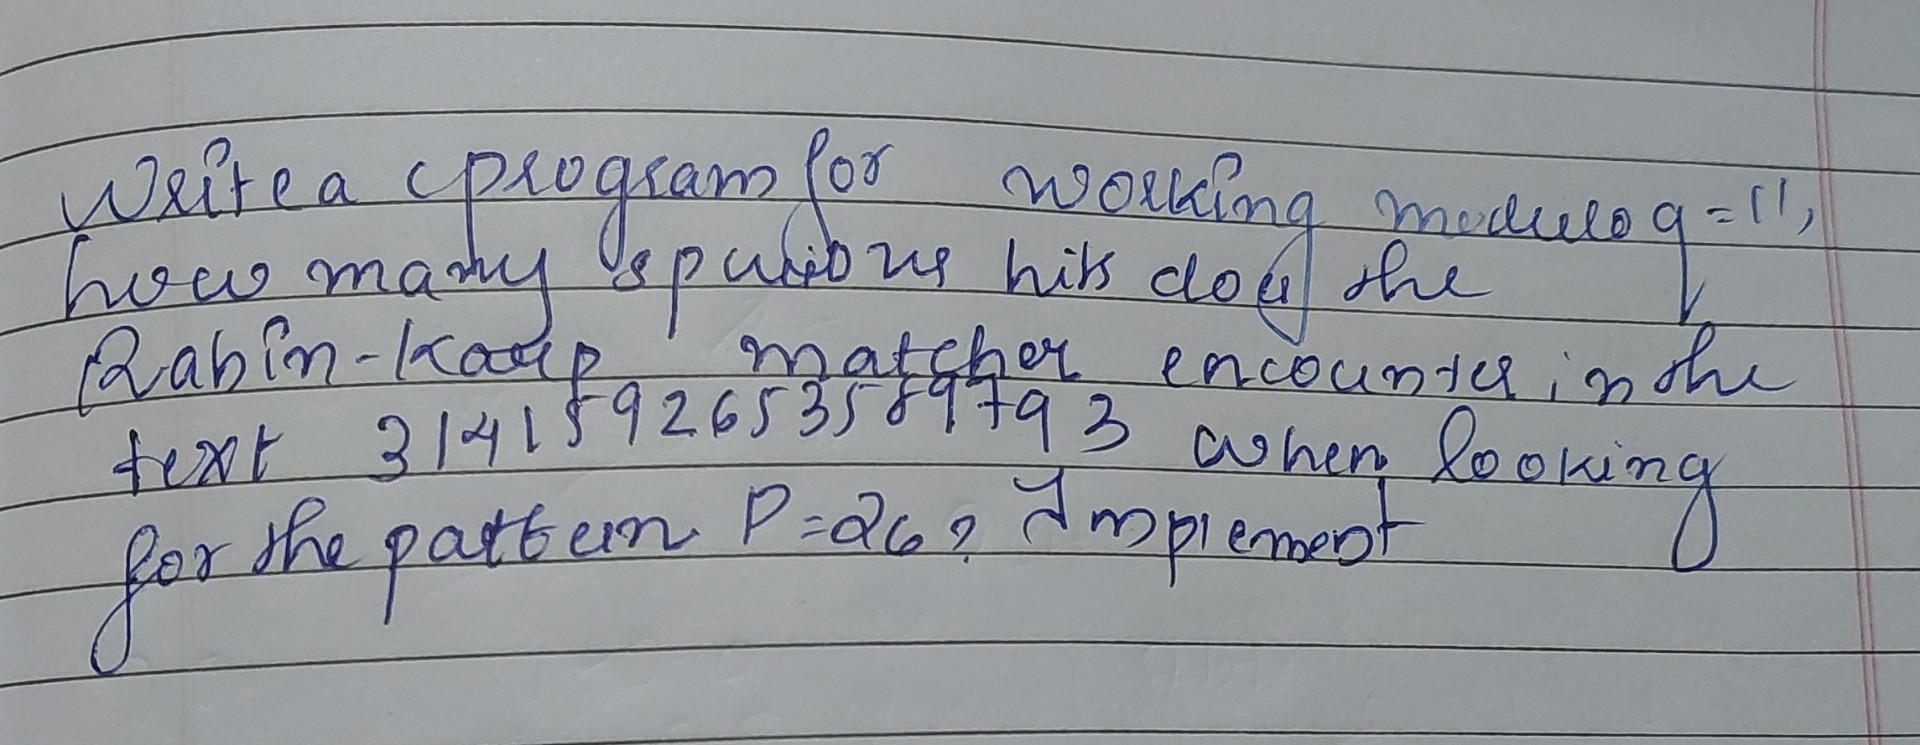 Write a c program for working modulo q=11,
how many spurious hits does the
Rabin-Karp matcher encounter in the
text 3141592653589793 when looking
for the pattern P=26? Implement